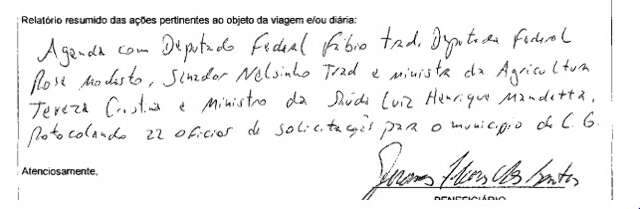 Relatório resumido das ações pertinentes ao objeto da viagem e/ou diária:
Agenda com Deputado Federal Fábio Trad, Deputada Federal
Rose Modesto, Senador Nelsinho Trad e ministra da Agricultura
Tereza Cristina e Ministro da Saúde Luiz Henrique Mandetta,
Protocolando 22 oficios de solicitações para o municipio de C.G.
Atenciosamente,
BENEFICIÁRIO